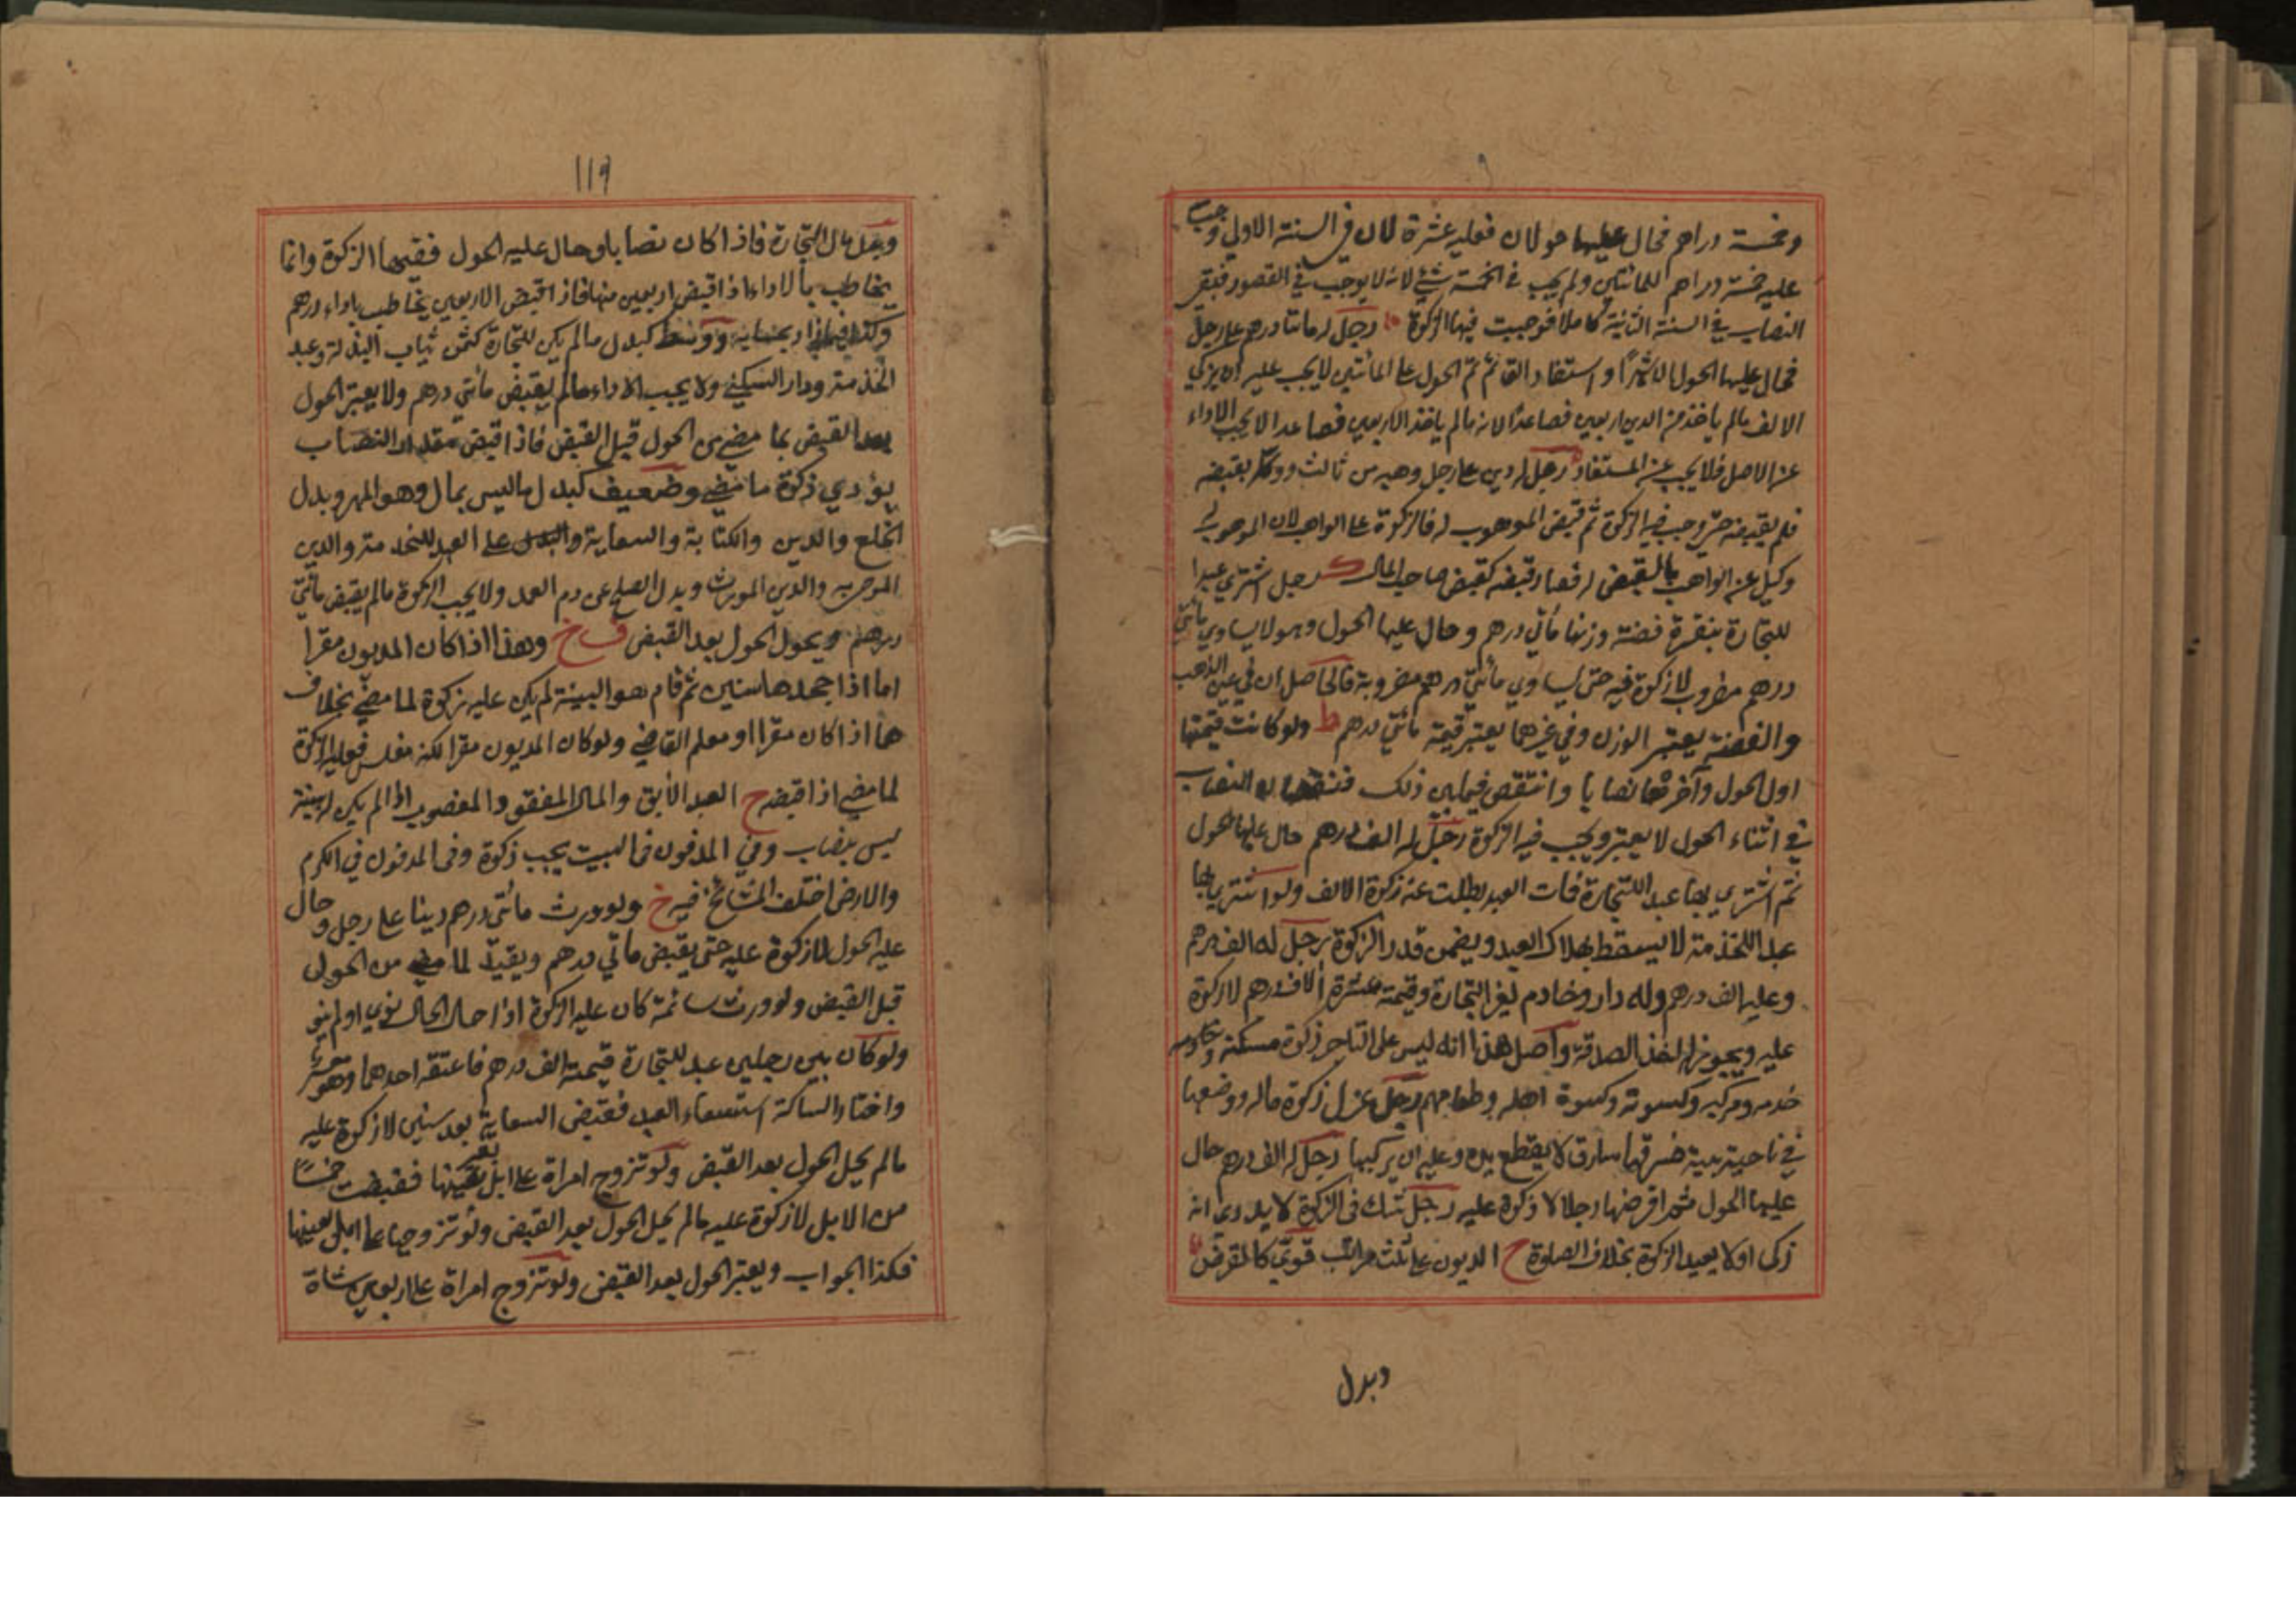 وخمسة دراهم فحال عليها حولان فعليه عشرة لان في السنة الاولي وجب
عليه خمسة دراهم للمائتين ولم يجب في الخمسة شئ لانه لا يوجب في القصور فبقي
النصاب في السنة الثانية كاملا فوجبت فيها الزكوة رجل له مائتا درهم علي رجل
فحال عليها الحول الا شهرا واستفاد الفا ثم تم الحول علي المائتين لا يجب عليه ان يزكي
الالف مالم ياخذ من الدين اربعين فصاعدا لانه مالم ياخذ الاربعين فصاعدا لا يجب الاداء
عن الاصل فلا يجب عن المستفاد رجل له دين علي رجل وهبه من ثالث ووكله بقبضه
فلم يقبضه حتي وجب فيه الزكوة ثم قبض الموهوب له فالزكوة علي الواهب لان الموهوب له
وكيل عن الواهب بالقبض له فصار قبضه كقبض صاحب المال ك رجل اشتري عبدا
للتجارة بنقرة فضة وزنها مأتي درهم وحال عليها الحول وهو لا يساوي مأتي
درهم مضروب لا زكوة فيه حتي يساوي مائتي درهم مضروبة فالحاصل ان في عين الذهب
والفضة يعتبر الوزن وفي غيرهما يعتبر قيمة مائتي درهم ط ولو كانت قيمتها
اول الحول وآخرها نصابا وانتقص فيما بين ذلك النصاب
في اثناء الحول لا يعتبر ويجب فيه الزكوة رجل له الف درهم حال عليها الحول
ثم اشتري بها عبدا للتجارة فمات العبد بطلت عنه زكوة الالف ولو اشتري بها
عبدا للخذمة لا يسقط بهلاك العبد ويضمن قدر الزكوة رجل له الف درهم
وعليه الف درهم وله دار وخادم لغير التجارة وقيمته عشرة الاف درهم لا زكوة
عليه ويجوز له اخذ الصدقة واصل هذا انه ليس علي التاجر زكوة مسكنه وخادمه
خدمه ومركبه وكسوته وكسوة اهله وطعامهم رجل عزل زكوة ماله ووضعها
في ناحية بيته فسرقها سارق لا يقطع يده وعليه ان يزكيها رجل له الف درهم حال
عليها الحول ثم اقرضها رجلا لا زكوة عليه رجل شك في الزكوة لا يدري انه
زكي او لا يعيد الزكوة بخلاف الصلوة ح الديون علي ثلث مراتب قوي كالقرض
وبدل
١١٩
وبدل مال التجارة فاذا كان نصابا وحال عليه الحول ففيها الزكوة وانما
يخاطب بالاداء اذا قبض اربعين منها فاذا قبض الاربعين يخاطب باداء درهم
ووسط كبدل مالم يكن للتجارة كثمن ثياب البذلة وعبد
الخذمة ودار السكني ولا يجب الاداء مالم يقبض مأتي درهم ولا يعتبر الحول
بعد القبض بما مضي من الحول قبل القبض فاذا قبض مقدار النصاب
يؤدي زكوة ما مضي وضعيف كبدل ماليس بمال وهو المهر وبدل
الخلع والدين والكتابة والسعاية والبدل علي العبد للخدمة والدين
الموصي به والدين الموروث وبدل الصلح عن دم العمد ولا يجب الزكوة مالم يقبض مأتي
درهم ويحول الحول بعد القبض ف خ وهذا اذا كان المديون مقرا
اما اذا جحدها سنين ثم قام هو البينة لم يكن عليه زكوة لما مضي بخلاف
ما اذا كان مقرا او معلم القاضي ولو كان المديون مقرا لكنه مفلس فعليه الزكوة
لما مضي اذا قبض ح العبد الآبق والمال المفقود والمغصوب اذا لم يكن له بينة
ليس بنصاب وفي المدفون في البيت يجب زكوة وفي المدفون في الكرم
والارض اختلف المشائخ فيه خ ولو ورث مائتي درهم دينا علي رجل وحال
عليه الحول لا زكوة عليه حتي يقبض مأتي درهم لما مضي من الحول
قبل القبض ولو ورث سائمة كان عليه الزكوة اذا حال الحال نوي او لم ينو
ولو كان بين رجلين عبد للتجارة قيمته الف درهم فاعتقه احدهما وهو معسر
واختار الساكت استسعاء العبد فقبض السعاية بعد سنين لا زكوة عليه
مالم يحل الحول بعد القبض ولو تزوج امراة علي ابل بغير عينها فقبضت خمسا
من الابل لا زكوة عليه مالم يحل الحول بعد القبض ولو تزوجها علي ابل بعينها
فكذا الجواب ويعتبر الحول بعد القبض ولو تزوج امراة علي اربعين شاة